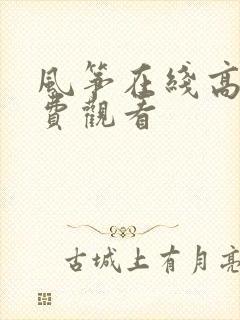 風筝在綫高
費觀看
古城上有月亮